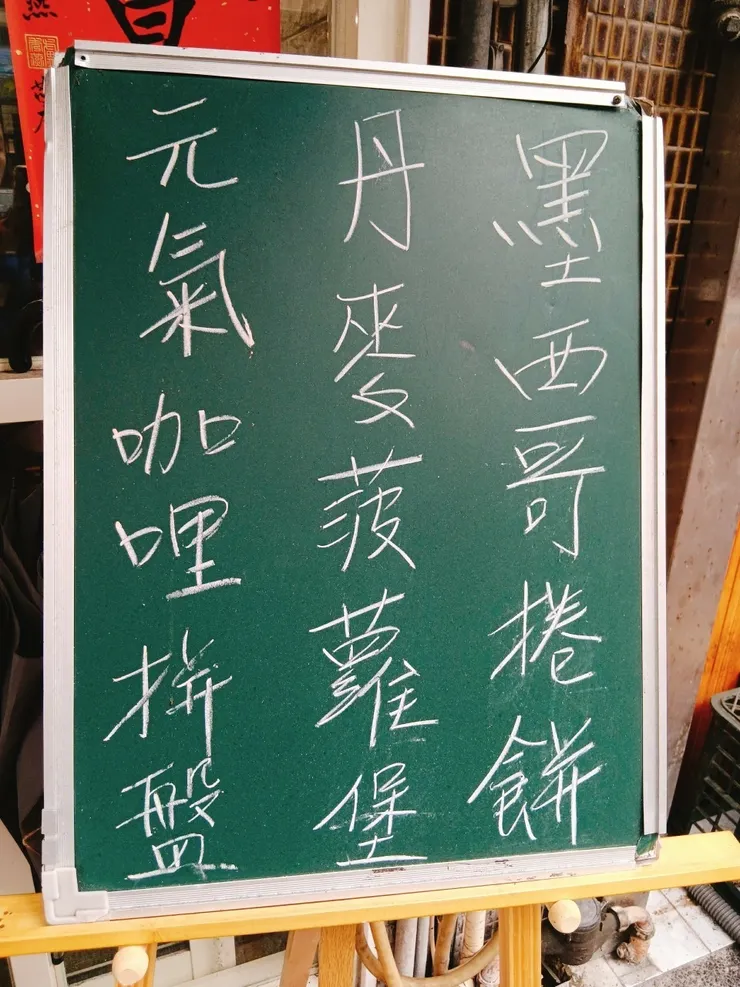 墨西哥捲餅
丹麥菠蘿堡
元氣咖哩拼盤